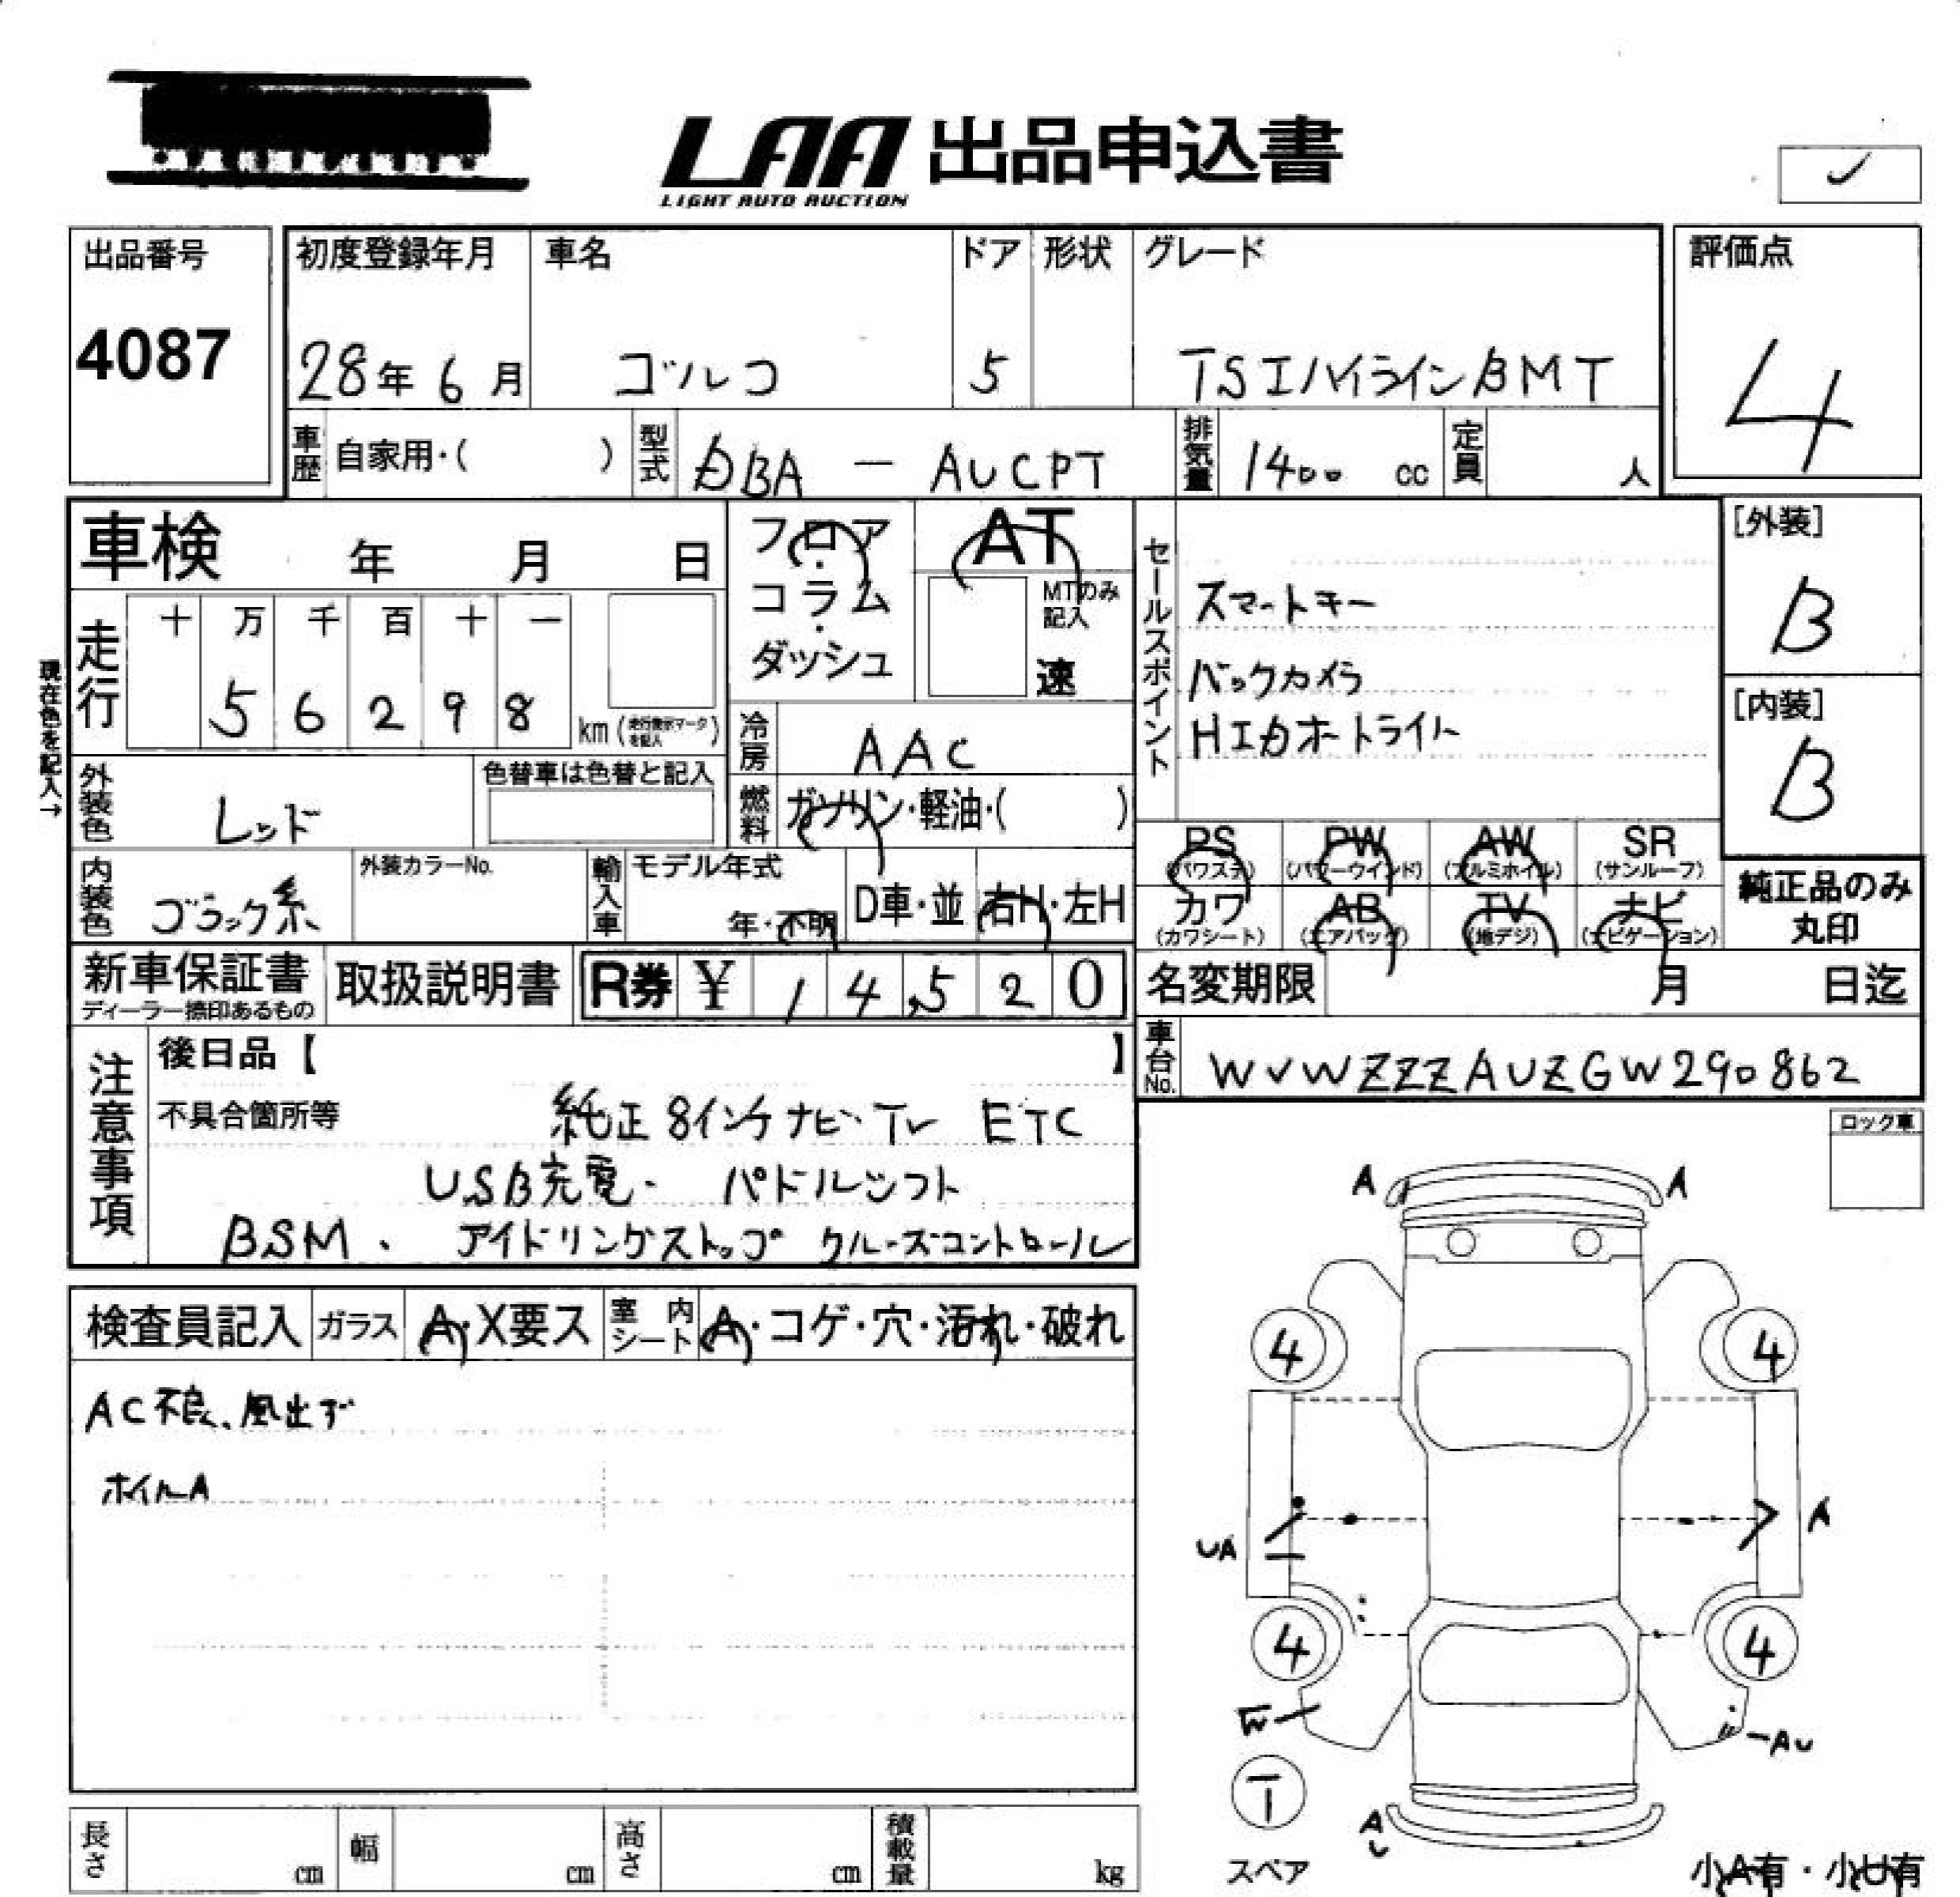 LAA 出品申込書
LIGHT AUTO AUCTION
出品番号
4087
初度登録年月
28年 6月
車名
ゴルフ
ドア
5
形状
グレード
TSIハイラインBMT
評価点
4
車歴 自家用・( )
型式 DBA － AUCPT
排気量 1400 cc
定員 人
車検 年 月 日
フロア・コラム・ダッシュ
AT
MTのみ記入
速
セールスポイント
スマートキー
バックカメラ
HIDオートライト
[外装]
B
[内装]
B
現在色を記入→
走行
十 万 千 百 十 一
5 6 2 9 8
km (走行表示マークを記入)
冷房 AAC
外装色 レッド
色替車は色替と記入
燃料 ガソリン・軽油・( )
PS (パワステ)
PW (パワーウインド)
AW (アルミホイル)
SR (サンルーフ)
カワ (カワシート)
AB (エアバッグ)
TV (地デジ)
ナビ (ナビゲーション)
純正品のみ丸印
内装色 ブラック系
外装カラーNo.
輸入車
モデル年式
年・不明
D車・並
右H・左H
新車保証書
ディーラー捺印あるもの
取扱説明書
R券 ¥ 14,520
名変期限 月 日迄
車台No. WVWZZZAUZGW290862
注意事項
後日品【 】
不具合箇所等
純正8インチナビ・TV ETC
USB充電・ パドルシフト
BSM、 アイドリングストップ クルーズコントロール
ロック車
検査員記入
ガラス A・X要ス
室内シート A・コゲ・穴・汚れ・破れ
AC不良、風出ず
ホイルA
A A
4 4
UA A
4 4
W
AU
T
スペア
AU
長さ cm
幅 cm
高さ cm
積載量 kg
小A有・小U有